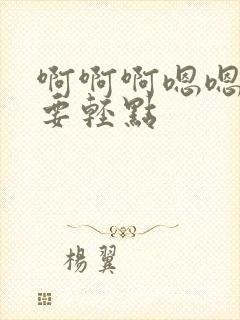 啊啊啊嗯嗯
要轻點
楊翼